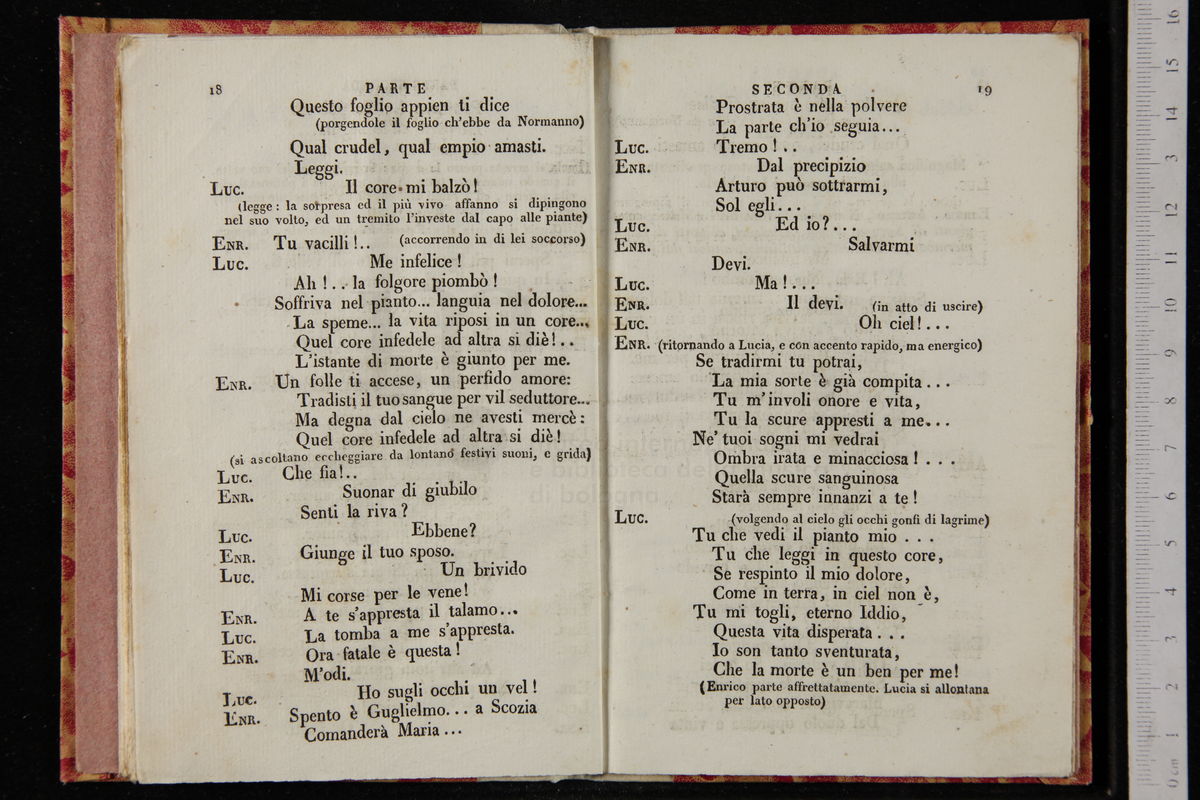 18 PARTE
Questo foglio appien ti dice
(porgendole il foglio ch'ebbe da Normanno)
Qual crudel, qual empio amasti.
Leggi.
Luc. Il core mi balzò!
(legge: la sorpresa ed il più vivo affanno si dipingono
nel suo volto, ed un tremito l'investe dal capo alle piante)
Enr. Tu vacilli!.. (accorrendo in di lei soccorso)
Luc. Me infelice!
Ah!... la folgore piombò!
Soffriva nel pianto... languia nel dolore...
La speme... la vita riposi in un core...
Quel core infedele ad altra si diè!..
L'istante di morte è giunto per me.
Enr. Un folle ti accese, un perfido amore:
Tradisti il tuo sangue per vil seduttore...
Ma degna dal cielo ne avesti mercè:
Quel core infedele ad altra si diè!
(si ascoltano eccheggiare da lontano festivi suoni, e grida)
Luc. Che fia!..
Enr. Suonar di giubilo
Senti la riva?
Luc. Ebbene?
Enr. Giunge il tuo sposo.
Luc. Un brivido
Mi corse per le vene!
Enr. A te s'appresta il talamo...
Luc. La tomba a me s'appresta.
Enr. Ora fatale è questa!
M'odi.
Luc. Ho sugli occhi un vel!
Enr. Spento è Guglielmo... a Scozia
Comanderà Maria...
SECONDA 19
Prostrata è nella polvere
La parte ch'io seguia...
Luc. Tremo!..
Enr. Dal precipizio
Arturo può sottrarmi,
Sol egli...
Luc. Ed io?...
Enr. Salvarmi
Devi.
Luc. Ma!...
Enr. Il devi. (in atto di uscire)
Luc. Oh ciel!...
Enr. (ritornando a Lucia, e con accento rapido, ma energico)
Se tradirmi tu potrai,
La mia sorte è già compita...
Tu m'involi onore e vita,
Tu la scure appresti a me...
Ne' tuoi sogni mi vedrai
Ombra irata e minacciosa!...
Quella scure sanguinosa
Starà sempre innanzi a te!
Luc. (volgendo al cielo gli occhi gonfi di lagrime)
Tu che vedi il pianto mio...
Tu che leggi in questo core,
Se respinto il mio dolore,
Come in terra, in ciel non è,
Tu mi togli, eterno Iddio,
Questa vita disperata...
Io son tanto sventurata,
Che la morte è un ben per me!
(Enrico parte affrettatamente. Lucia si allontana
per lato opposto)